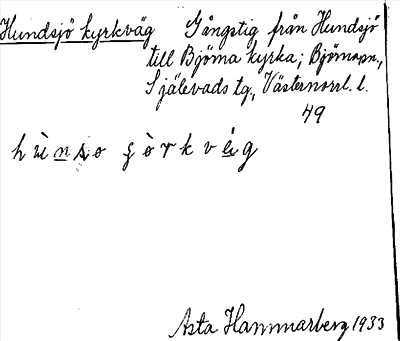 Hundsjö kyrkväg Gångstig från Hundsjö
till Björna kyrka; Björna sn.,
Själevads tg, Västernorrl. l.
49
Asta Hammarberg 1933